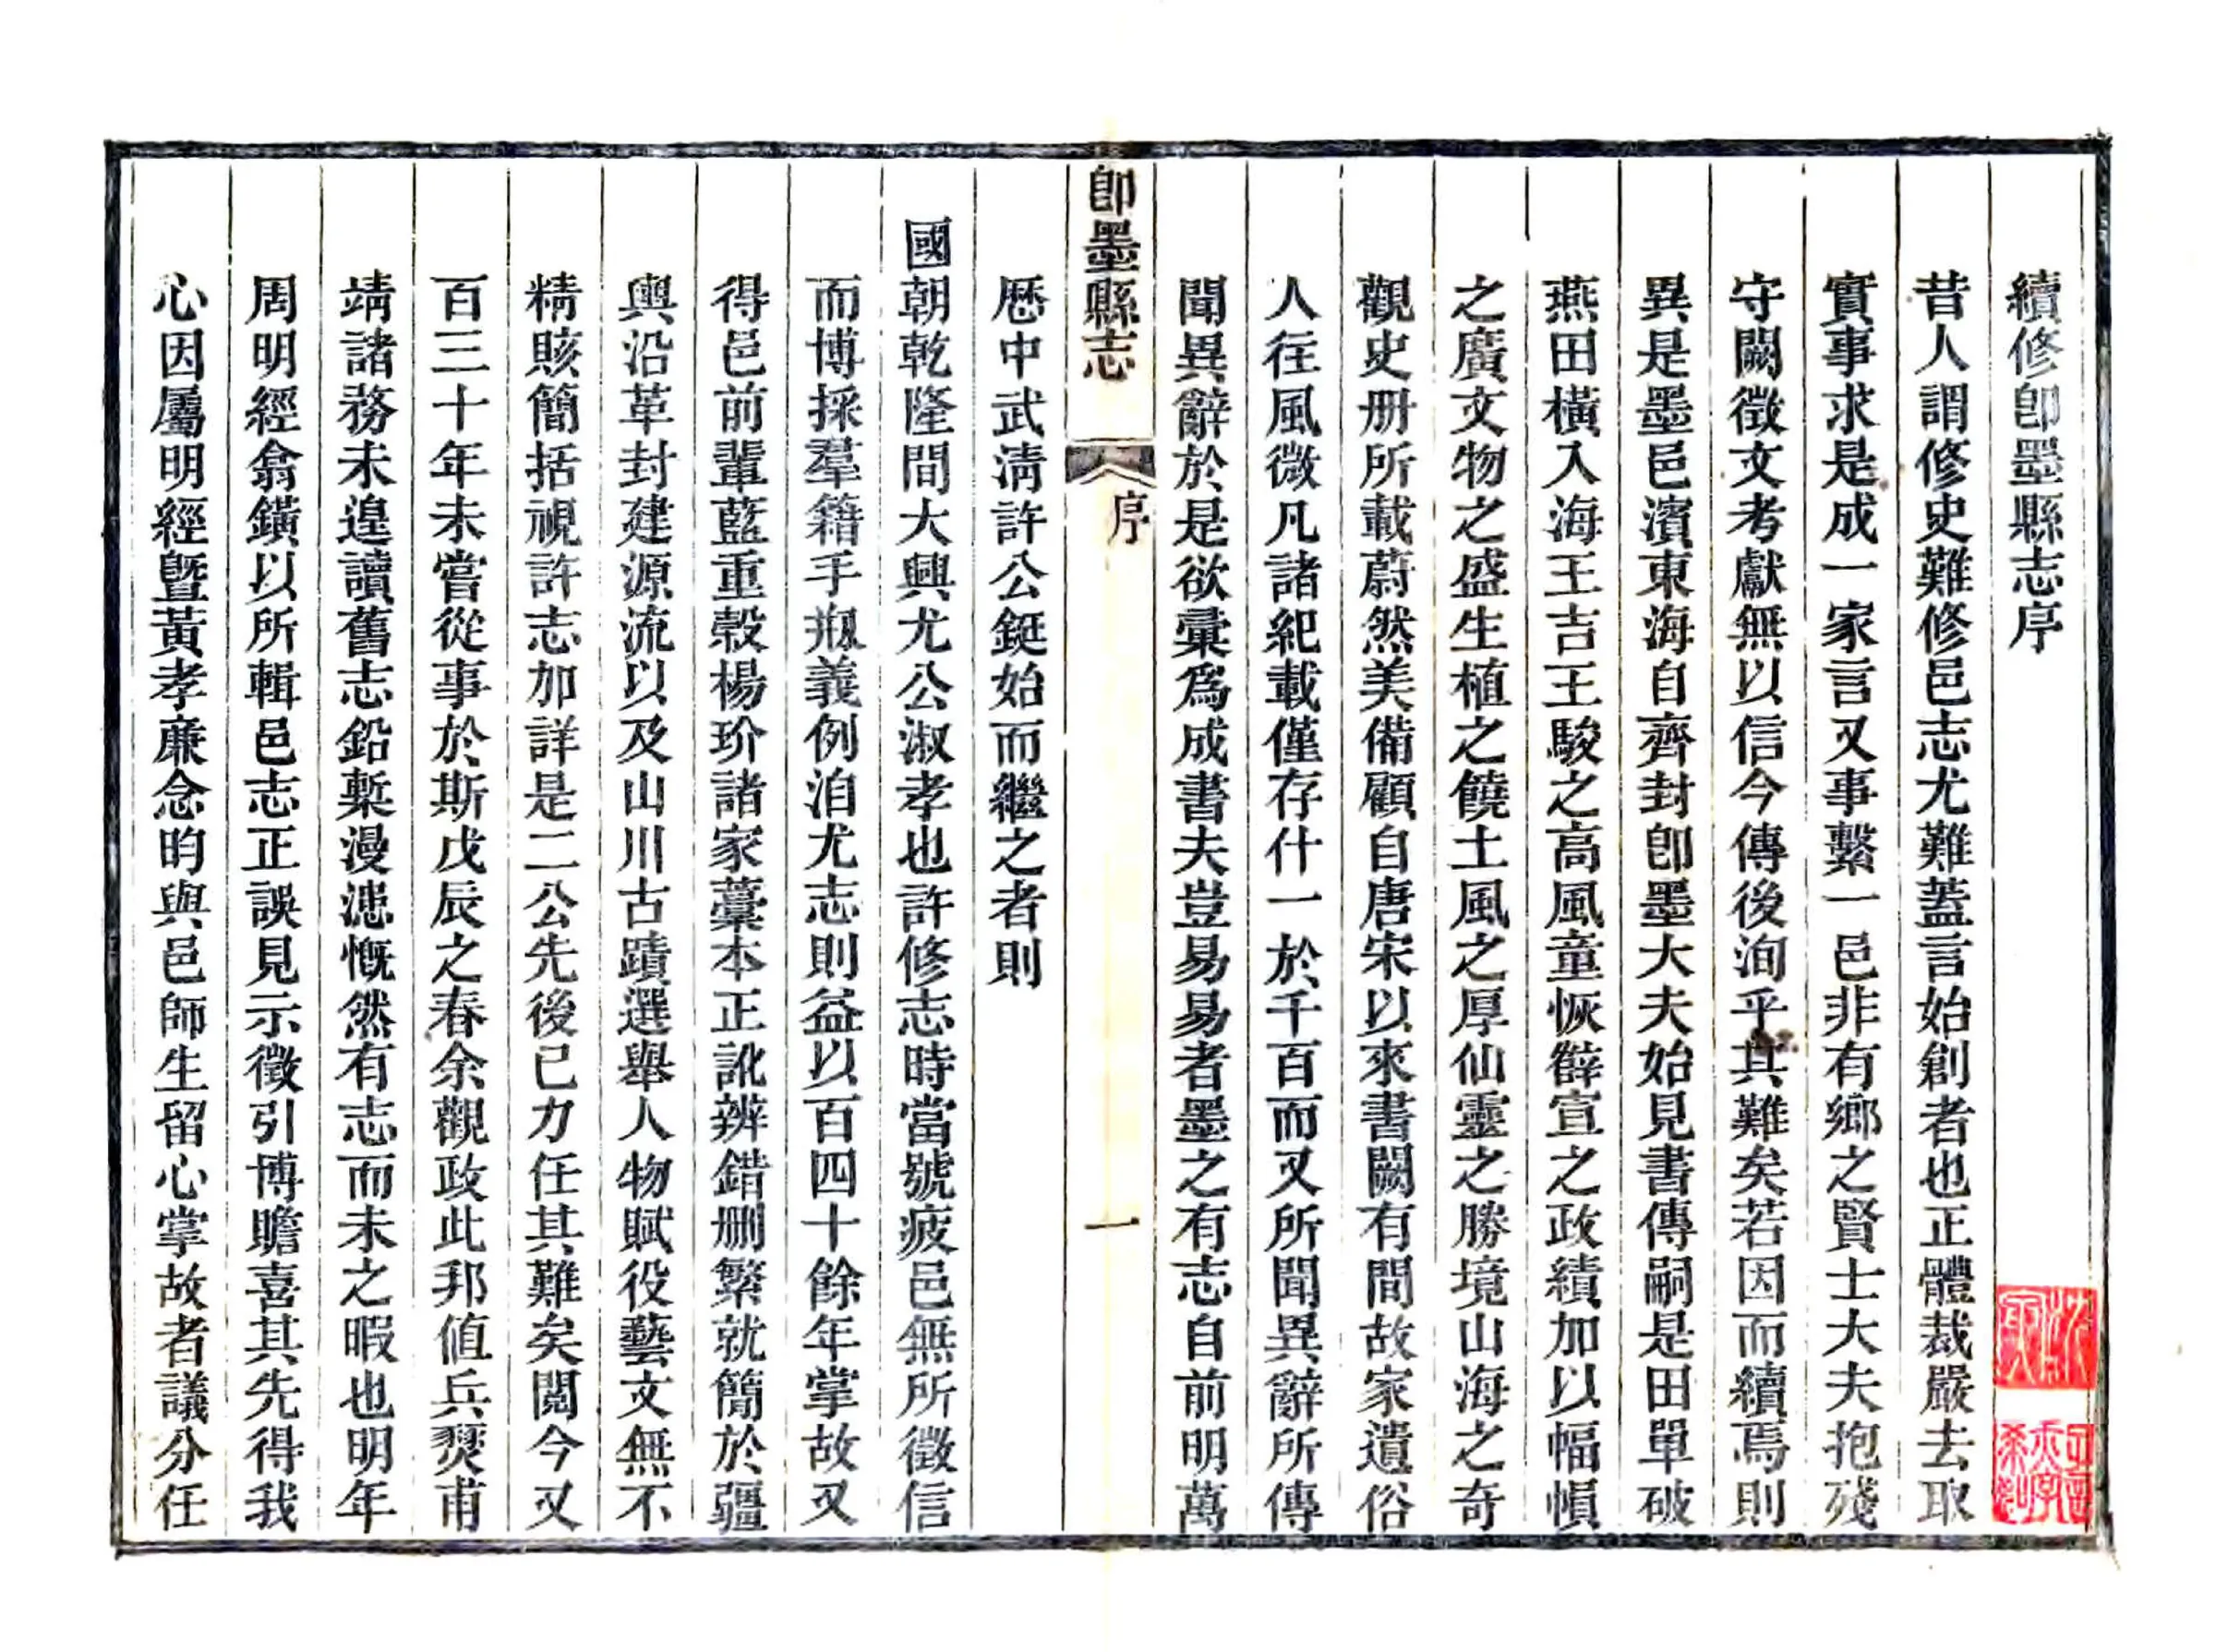 續修卽墨縣志序
昔人謂修史難修邑志尤難蓋言始創者也正體裁嚴去取
實事求是成一家言又事繫一邑非有鄉之賢士大夫抱殘
守闕徵文考獻無以信今傳後洵乎其難矣若因而續焉則
異是墨邑濱東海自齊封卽墨大夫始見書傳嗣是田單破
燕田橫入海王吉王駿之高風童恢薛宣之政績加以幅幀
之廣文物之盛生植之饒土風之厚仙靈之勝境山海之奇
觀史册所載蔚然美備顧自唐宋以來書闕有間故家遺俗
人往風微凡諸紀載僅存什一於千百而又所聞異辭所傳
聞異辭於是欲彙爲成書夫豈易易者墨之有志自前明萬
卽墨縣志
序
一
歷中武淸許公鋌始而繼之者則
國朝乾隆間大興尤公淑孝也許修志時當號疲邑無所徵信
而博採羣籍手剏義例洎尤志則益以百四十餘年掌故又
得邑前輩藍重榖楊玠諸家藁本正訛辨錯删繁就簡於疆
輿沿革封建源流以及山川古蹟選舉人物賦役藝文無不
精賅簡括視許志加詳是二公先後已力任其難矣閱今又
百三十年未嘗從事於斯戊辰之春余觀政此邦值兵燹甫
靖諸務未遑讀舊志鉛槧漫漶慨然有志而未之暇也明年
周明經翕鐄以所輯邑志正誤見示徵引博贍喜其先得我
心因屬明經曁黃孝廉念昀與邑師生留心掌故者議分任